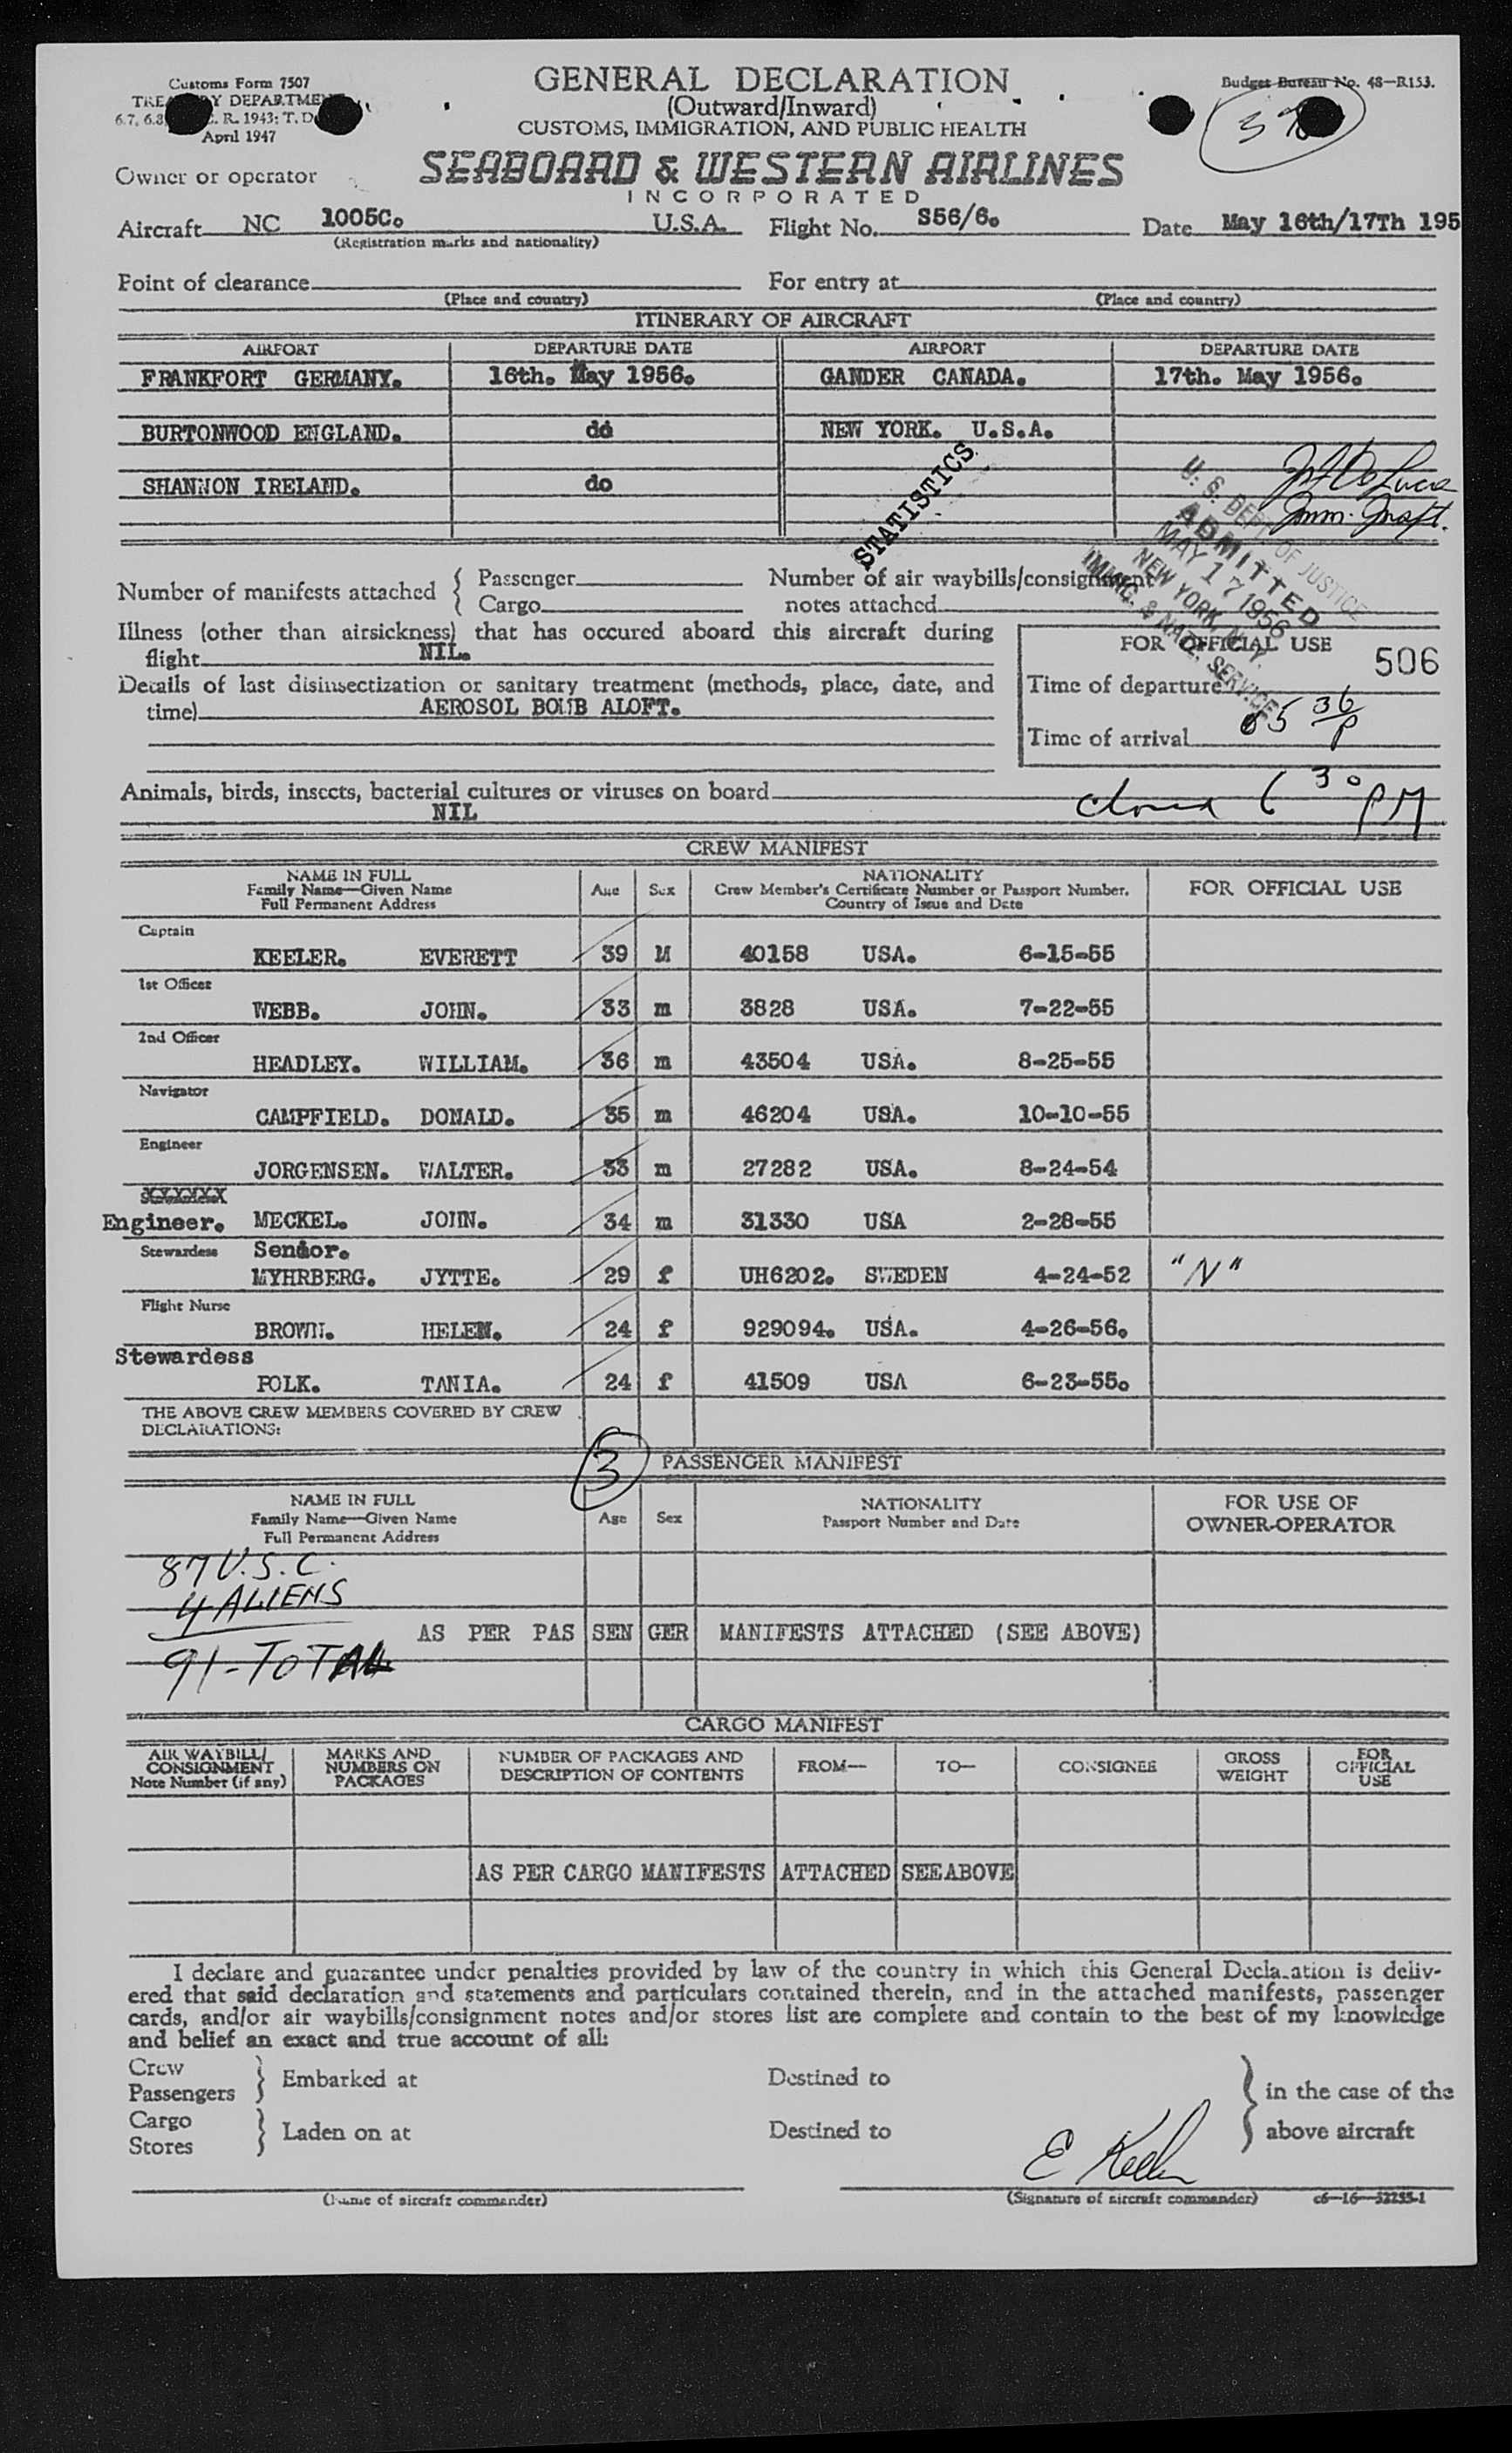 Customs Form 7507
GENERAL DECLARATION
Budget Bureau No. 48—R153.
(Outward/Inward)
6.7, 6.8, C. R. 1943; T. D.
April 1947
CUSTOMS, IMMIGRATION, AND PUBLIC HEALTH
SEABOARD & WESTERN AIRLINES
INCORPORATED
Owner or operator
Aircraft NC 1005C. U.S.A. Flight No. S56/6. Date May 16th/17Th 195
(Registration marks and nationality)
Point of clearance For entry at
(Place and country) (Place and country)
ITINERARY OF AIRCRAFT
AIRPORT DEPARTURE DATE AIRPORT DEPARTURE DATE
FRANKFORT GERMANY. 16th. May 1956. GANDER CANADA. 17th. May 1956.
BURTONWOOD ENGLAND. do NEW YORK. U.S.A.
SHANNON IRELAND. do
STATISTICS
U. S. DEPT. OF JUSTICE
ADMITTED
MAY 17 1956
NEW YORK, N.Y.
IMMIG. & NATZ. SERVICE
Number of manifests attached { Passenger Number of air waybills/consignment
Cargo notes attached
Illness (other than airsickness) that has occured aboard this aircraft during
flight NIL.
FOR OFFICIAL USE 506
Details of last disinsectization or sanitary treatment (methods, place, date, and
time) AEROSOL BOMB ALOFT.
Time of departure
Time of arrival 5 36 P
Animals, birds, insects, bacterial cultures or viruses on board
NIL
6 30 PM
CREW MANIFEST
NAME IN FULL
Family Name—Given Name
Full Permanent Address
Age Sex
NATIONALITY
Crew Member's Certificate Number or Passport Number,
Country of Issue and Date
FOR OFFICIAL USE
Captain
KEELER. EVERETT 39 M 40158 USA. 6-15-55
1st Officer
WEBB. JOHN. 33 m 3828 USA. 7-22-55
2nd Officer
HEADLEY. WILLIAM. 36 m 43504 USA. 8-25-55
Navigator
CAMPFIELD. DONALD. 35 m 46204 USA. 10-10-55
Engineer
JORGENSEN. WALTER. 33 m 27282 USA. 8-24-54
Engineer. MECKEL. JOHN. 34 m 31330 USA 2-28-55
Stewardess Senior.
MYHRBERG. JYTTE. 29 f UH6202. SWEDEN 4-24-52 "N"
Flight Nurse
BROWN. HELEN. 24 f 929094. USA. 4-26-56.
Stewardess
POLK. TANIA. 24 f 41509 USA 6-23-55.
THE ABOVE CREW MEMBERS COVERED BY CREW
DECLARATIONS:
3
PASSENGER MANIFEST
NAME IN FULL
Family Name—Given Name
Full Permanent Address
Age Sex
NATIONALITY
Passport Number and Date
FOR USE OF
OWNER-OPERATOR
87 U.S.C.
4 ALIENS
AS PER PAS SEN GER MANIFESTS ATTACHED (SEE ABOVE)
91-TOTAL
CARGO MANIFEST
AIR WAYBILL/
CONSIGNMENT
Note Number (if any)
MARKS AND
NUMBERS ON
PACKAGES
NUMBER OF PACKAGES AND
DESCRIPTION OF CONTENTS
FROM—
TO—
CONSIGNEE
GROSS
WEIGHT
FOR
OFFICIAL
USE
AS PER CARGO MANIFESTS ATTACHED SEE ABOVE
I declare and guarantee under penalties provided by law of the country in which this General Declaration is deliv-
ered that said declaration and statements and particulars contained therein, and in the attached manifests, passenger
cards, and/or air waybills/consignment notes and/or stores list are complete and contain to the best of my knowledge
and belief an exact and true account of all:
Crew
Passengers } Embarked at Destined to } in the case of the
Cargo
Stores } Laden on at Destined to above aircraft
E Keeler
(Name of aircraft commander) (Signature of aircraft commander) c6—16—52255-1